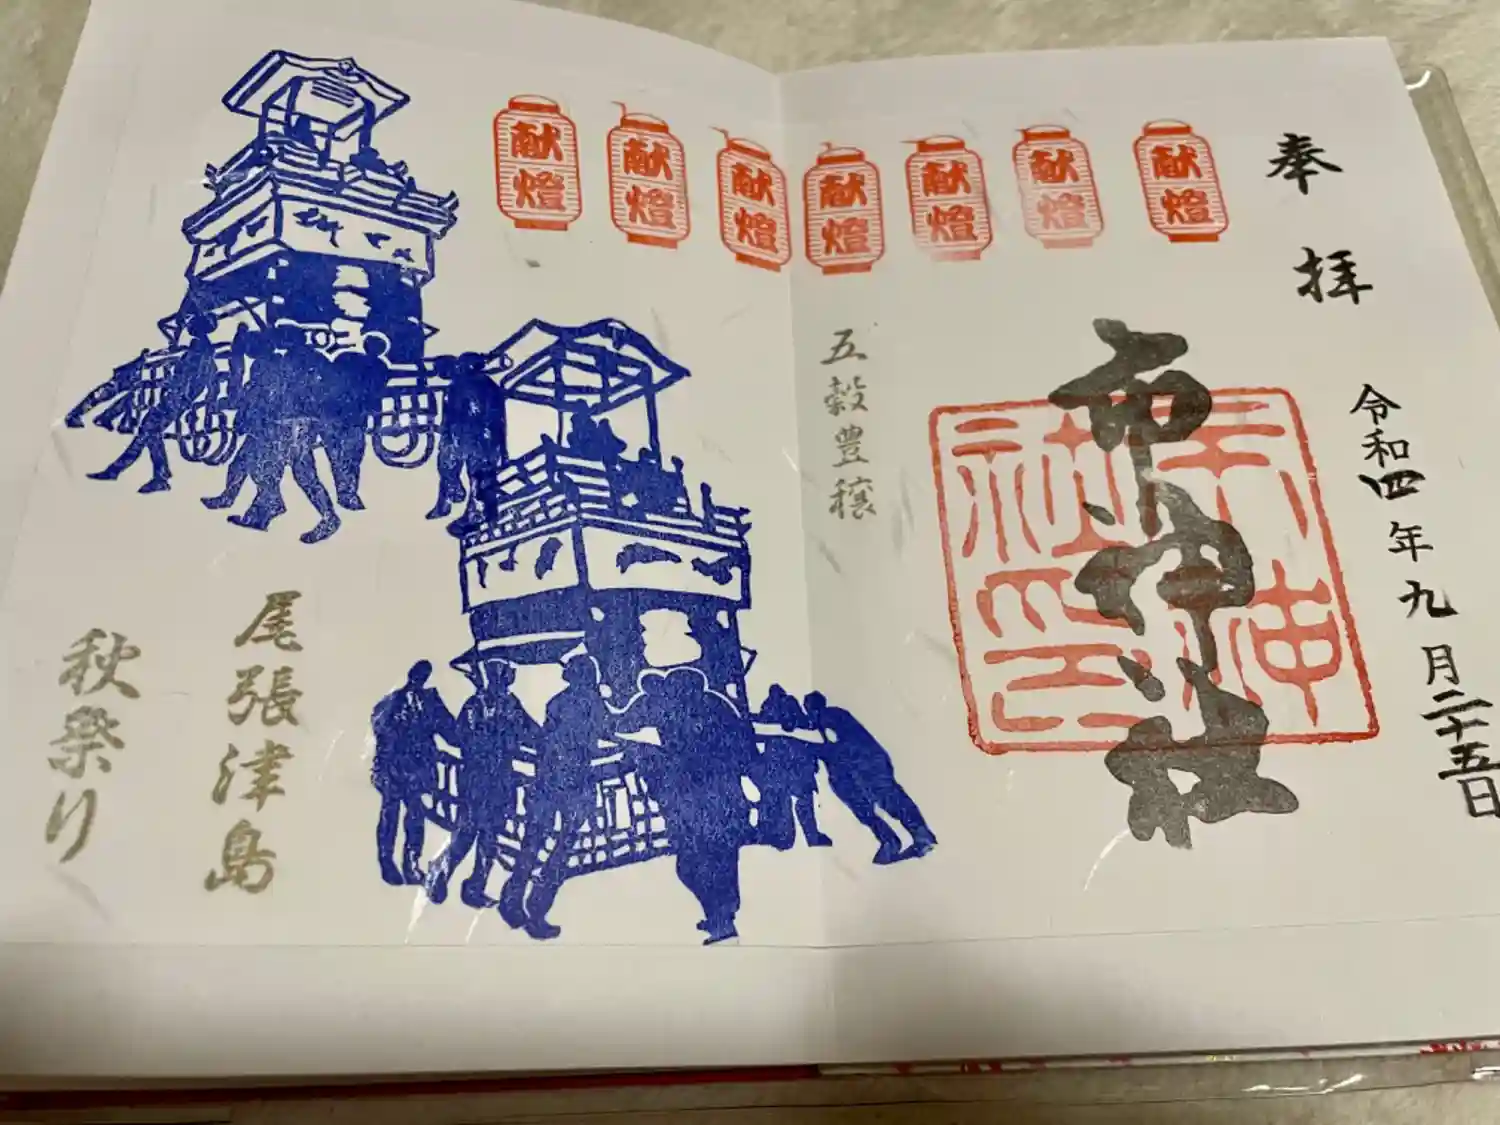 奉拝
令和四年九月二十五日
市神社
市神神社印
五穀豊穣
献燈
献燈
献燈
献燈
献燈
献燈
献燈
尾張津島
秋祭り